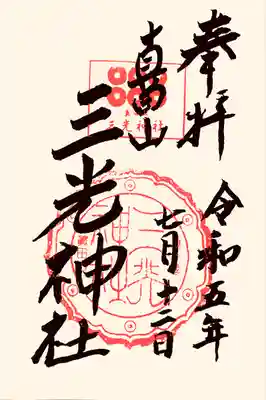 奉拝
令和五年
七月十二日
真田山
三光神社
三光神社